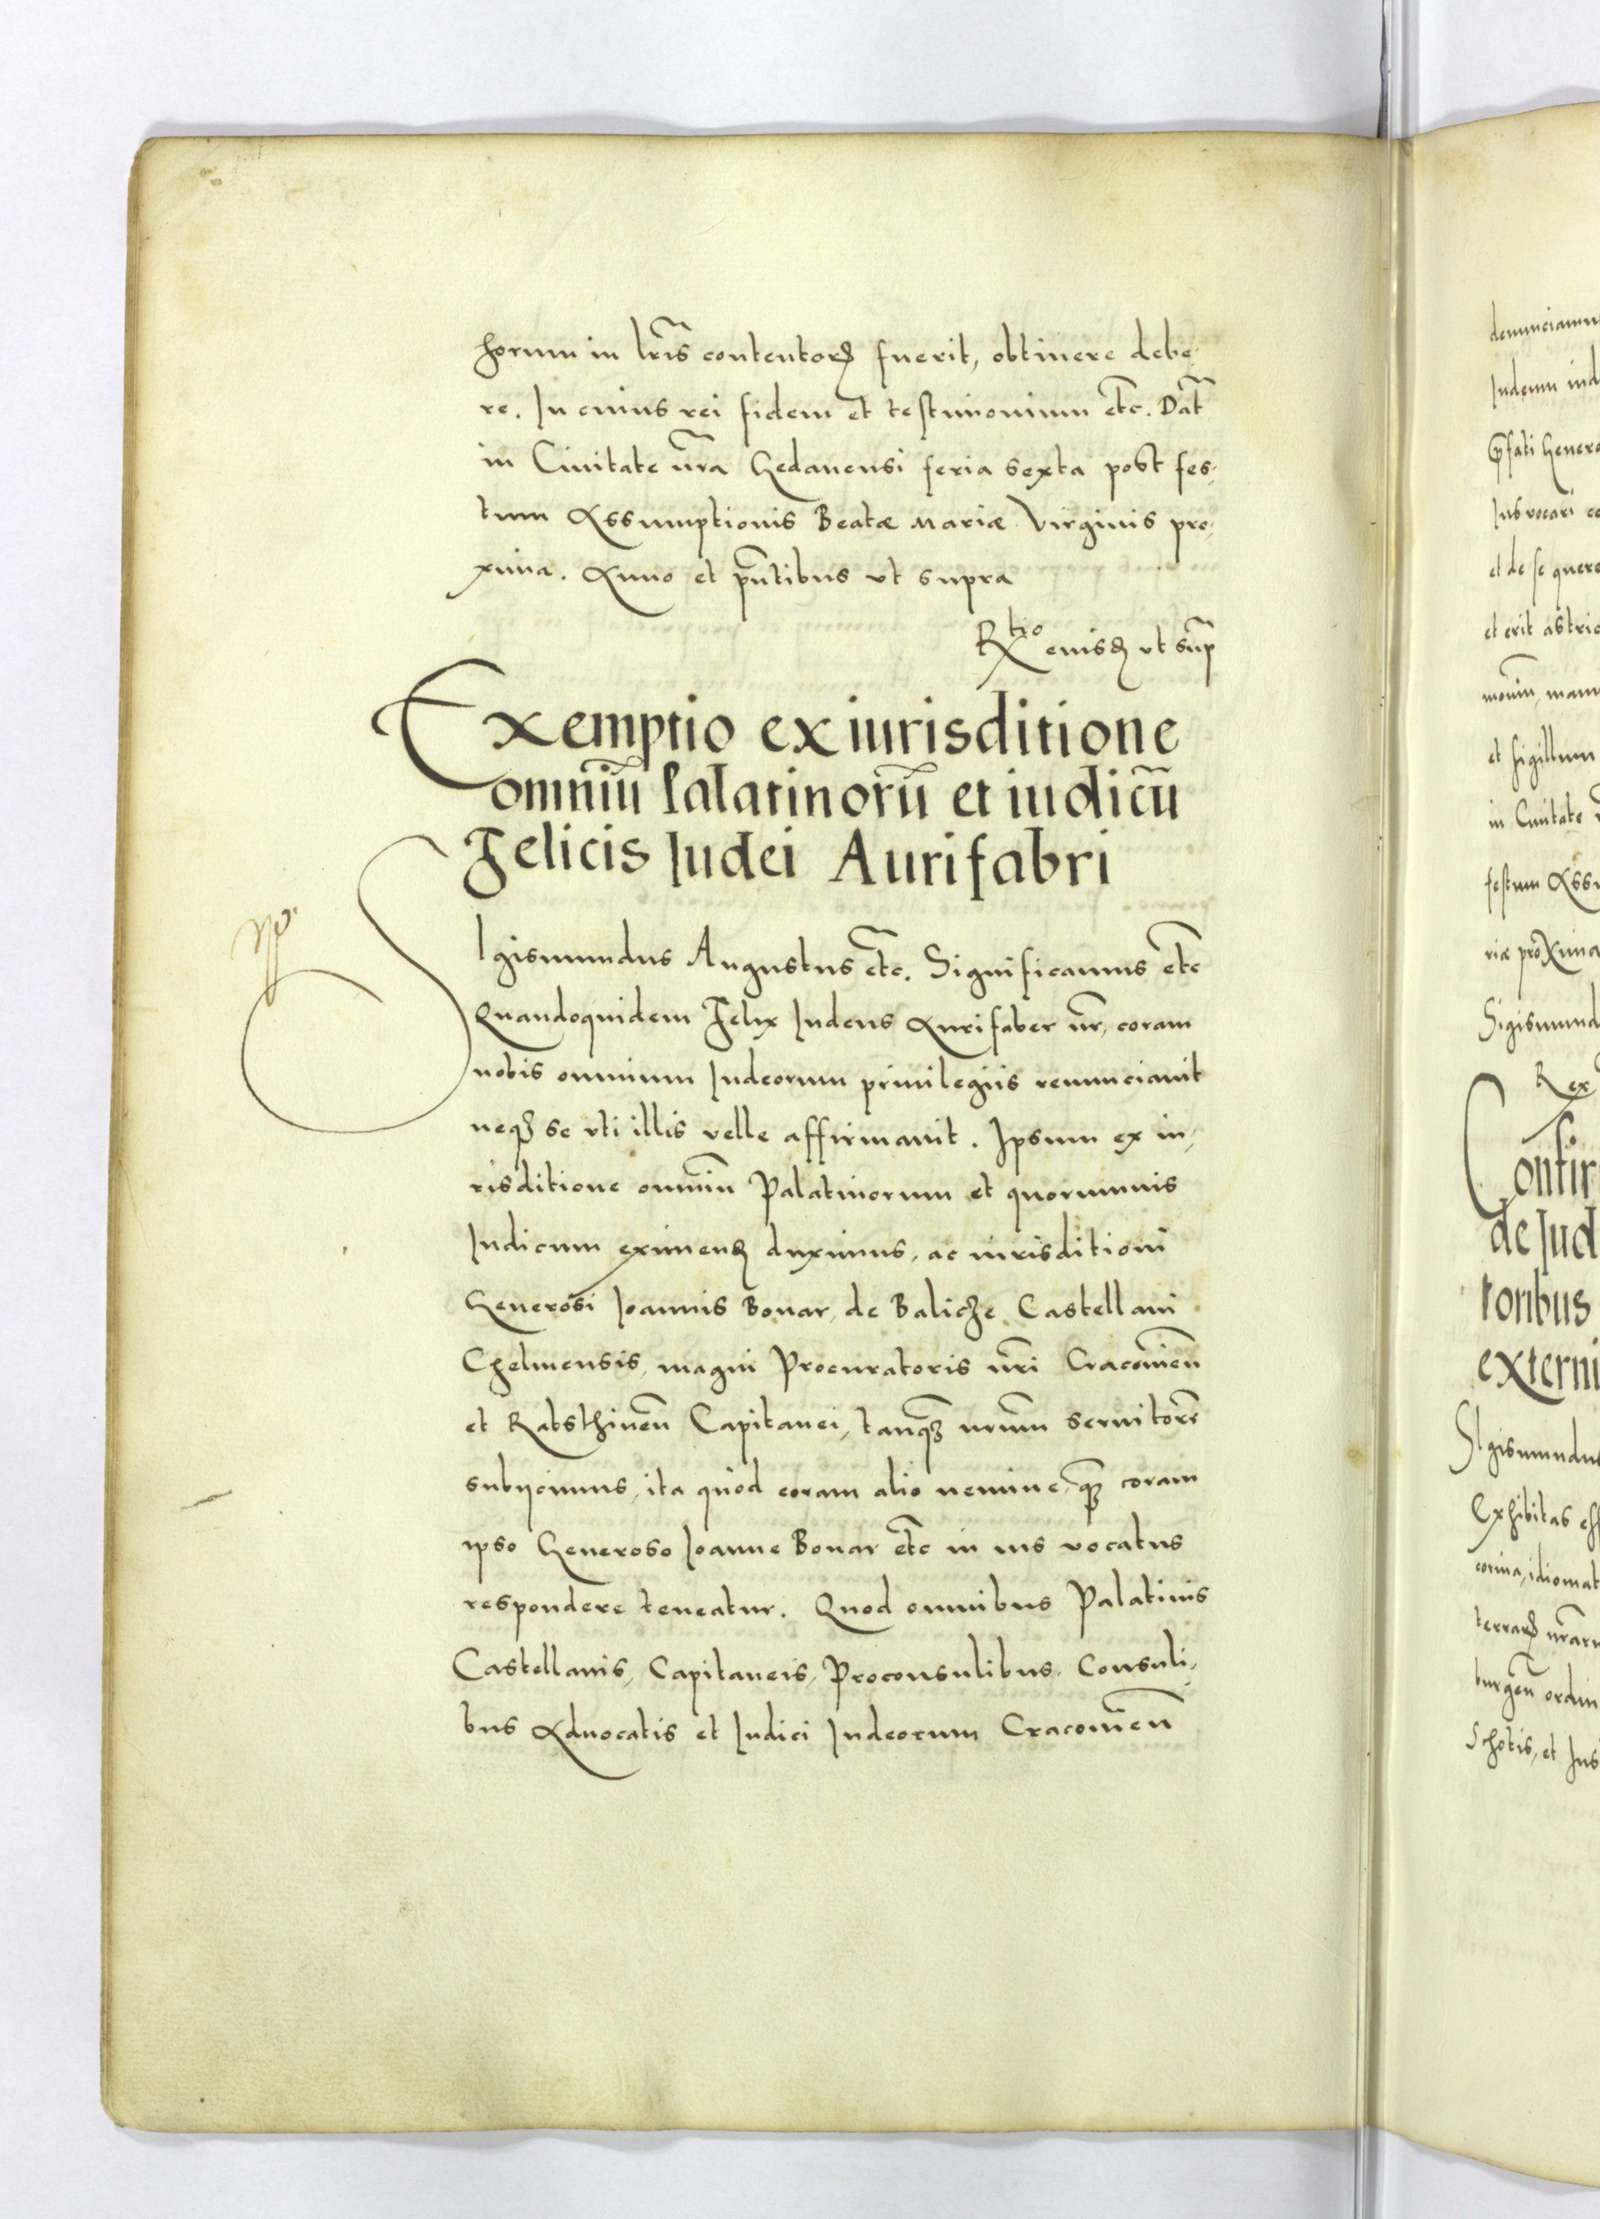 horum in lr̃is contentorꝫ fuerit, obtinere debe-
re. In cuius rei fidem et testimonium etc̃. Dat̃
in Ciuitate nr̃a Gedanensi feria sexta post fes-
tum Assumptionis Beatæ Mariæ Virginis pro-
xima. Anno et pñtibus vt supra
Rtio eiusdꝫ vt sup̃
Exemptio ex iurisditione
omniũ Palatinorũ et iudicũ
Felicis Iudei Aurifabri
SIgismundus Augustus etc̃. Significamus etc̃
Quandoquidem Felix Iudeus Aurifaber nr̃, coram
nobis omnium Iudeorum priuilegiis renunciauit
neqꝫ se vti illis velle affirmauit. Ipsum ex iu-
risditione omniũ Palatinorum et quorumuis
Iudicum eximendꝫ duximus, ac iurisditioni
Generosi Ioannis Bonar, de Balicze Castellani
Chelmensis, magni Procuratoris nr̃i Cracouieñ
et Rabsthineñ Capitanei, tanqꝫ nr̃um seruitorẽ
subijcimus, ita quod coram alio nemine, qꝫ coram
ipso Generoso Ioanne Bonar etc̃ in ius vocatus
respondere teneatur. Quod omnibus Palatinis
Castellanis, Capitaneis, Proconsulibus, Consuli-
bus Aduocatis et Iudici Iudeorum Cracouieñ
denunciamu
Iudeum ind
p̃fati Genero
Ius vocari co
et de se quere
et erit astric
moniũ, manu
et sigillum
in Ciuitate
festum Assu
riæ proxima
Sigismund
Rex
Confir
de Iud
toribus
externi
SIgismundus
Exhibitas
idiomat
terrarꝫ nr̃aru
burgeñ ordin
Schotis, et Ins